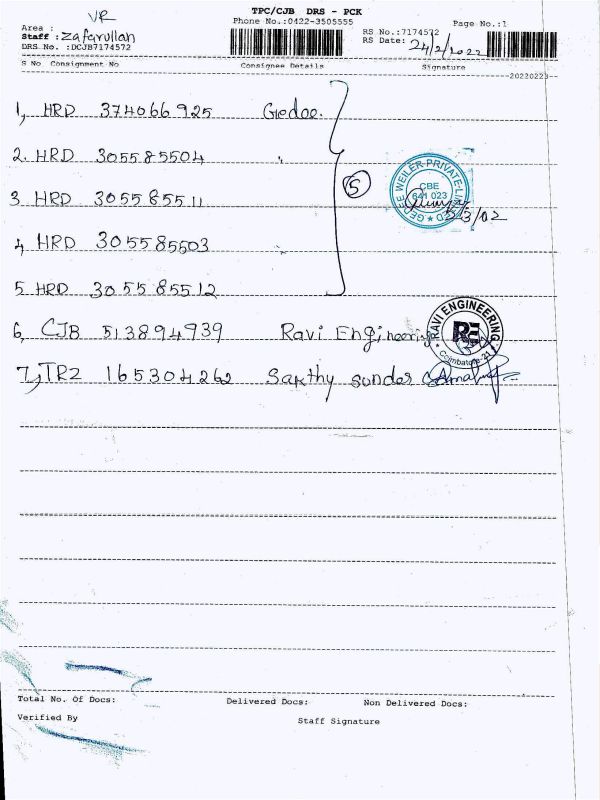 TPC/CJB DRS - PCK
Phone No.:0422-3505555
Page No.:1
Area : VR
Staff : Zafarullah
DRS No. :DCJB7174572
RS No.:7174572
RS Date: 24/2/2022
S No Consignment No Consignee Details Signature
20220223
1, HRD 374066925 Gedee.
2. HRD 305585504 "
3. HRD 305585511
4, HRD 305585503
5 HRD 305585512
5
GEDEE WEILER PRIVATE LIMITED
CBE
641 023
6, CJB 513894939 Ravi Engineering
RAVI ENGINEERING
RE
Coimbatore-21
7, TRZ 165304262 Sakthy sunder
Total No. Of Docs: Delivered Docs: Non Delivered Docs:
Verified By Staff Signature